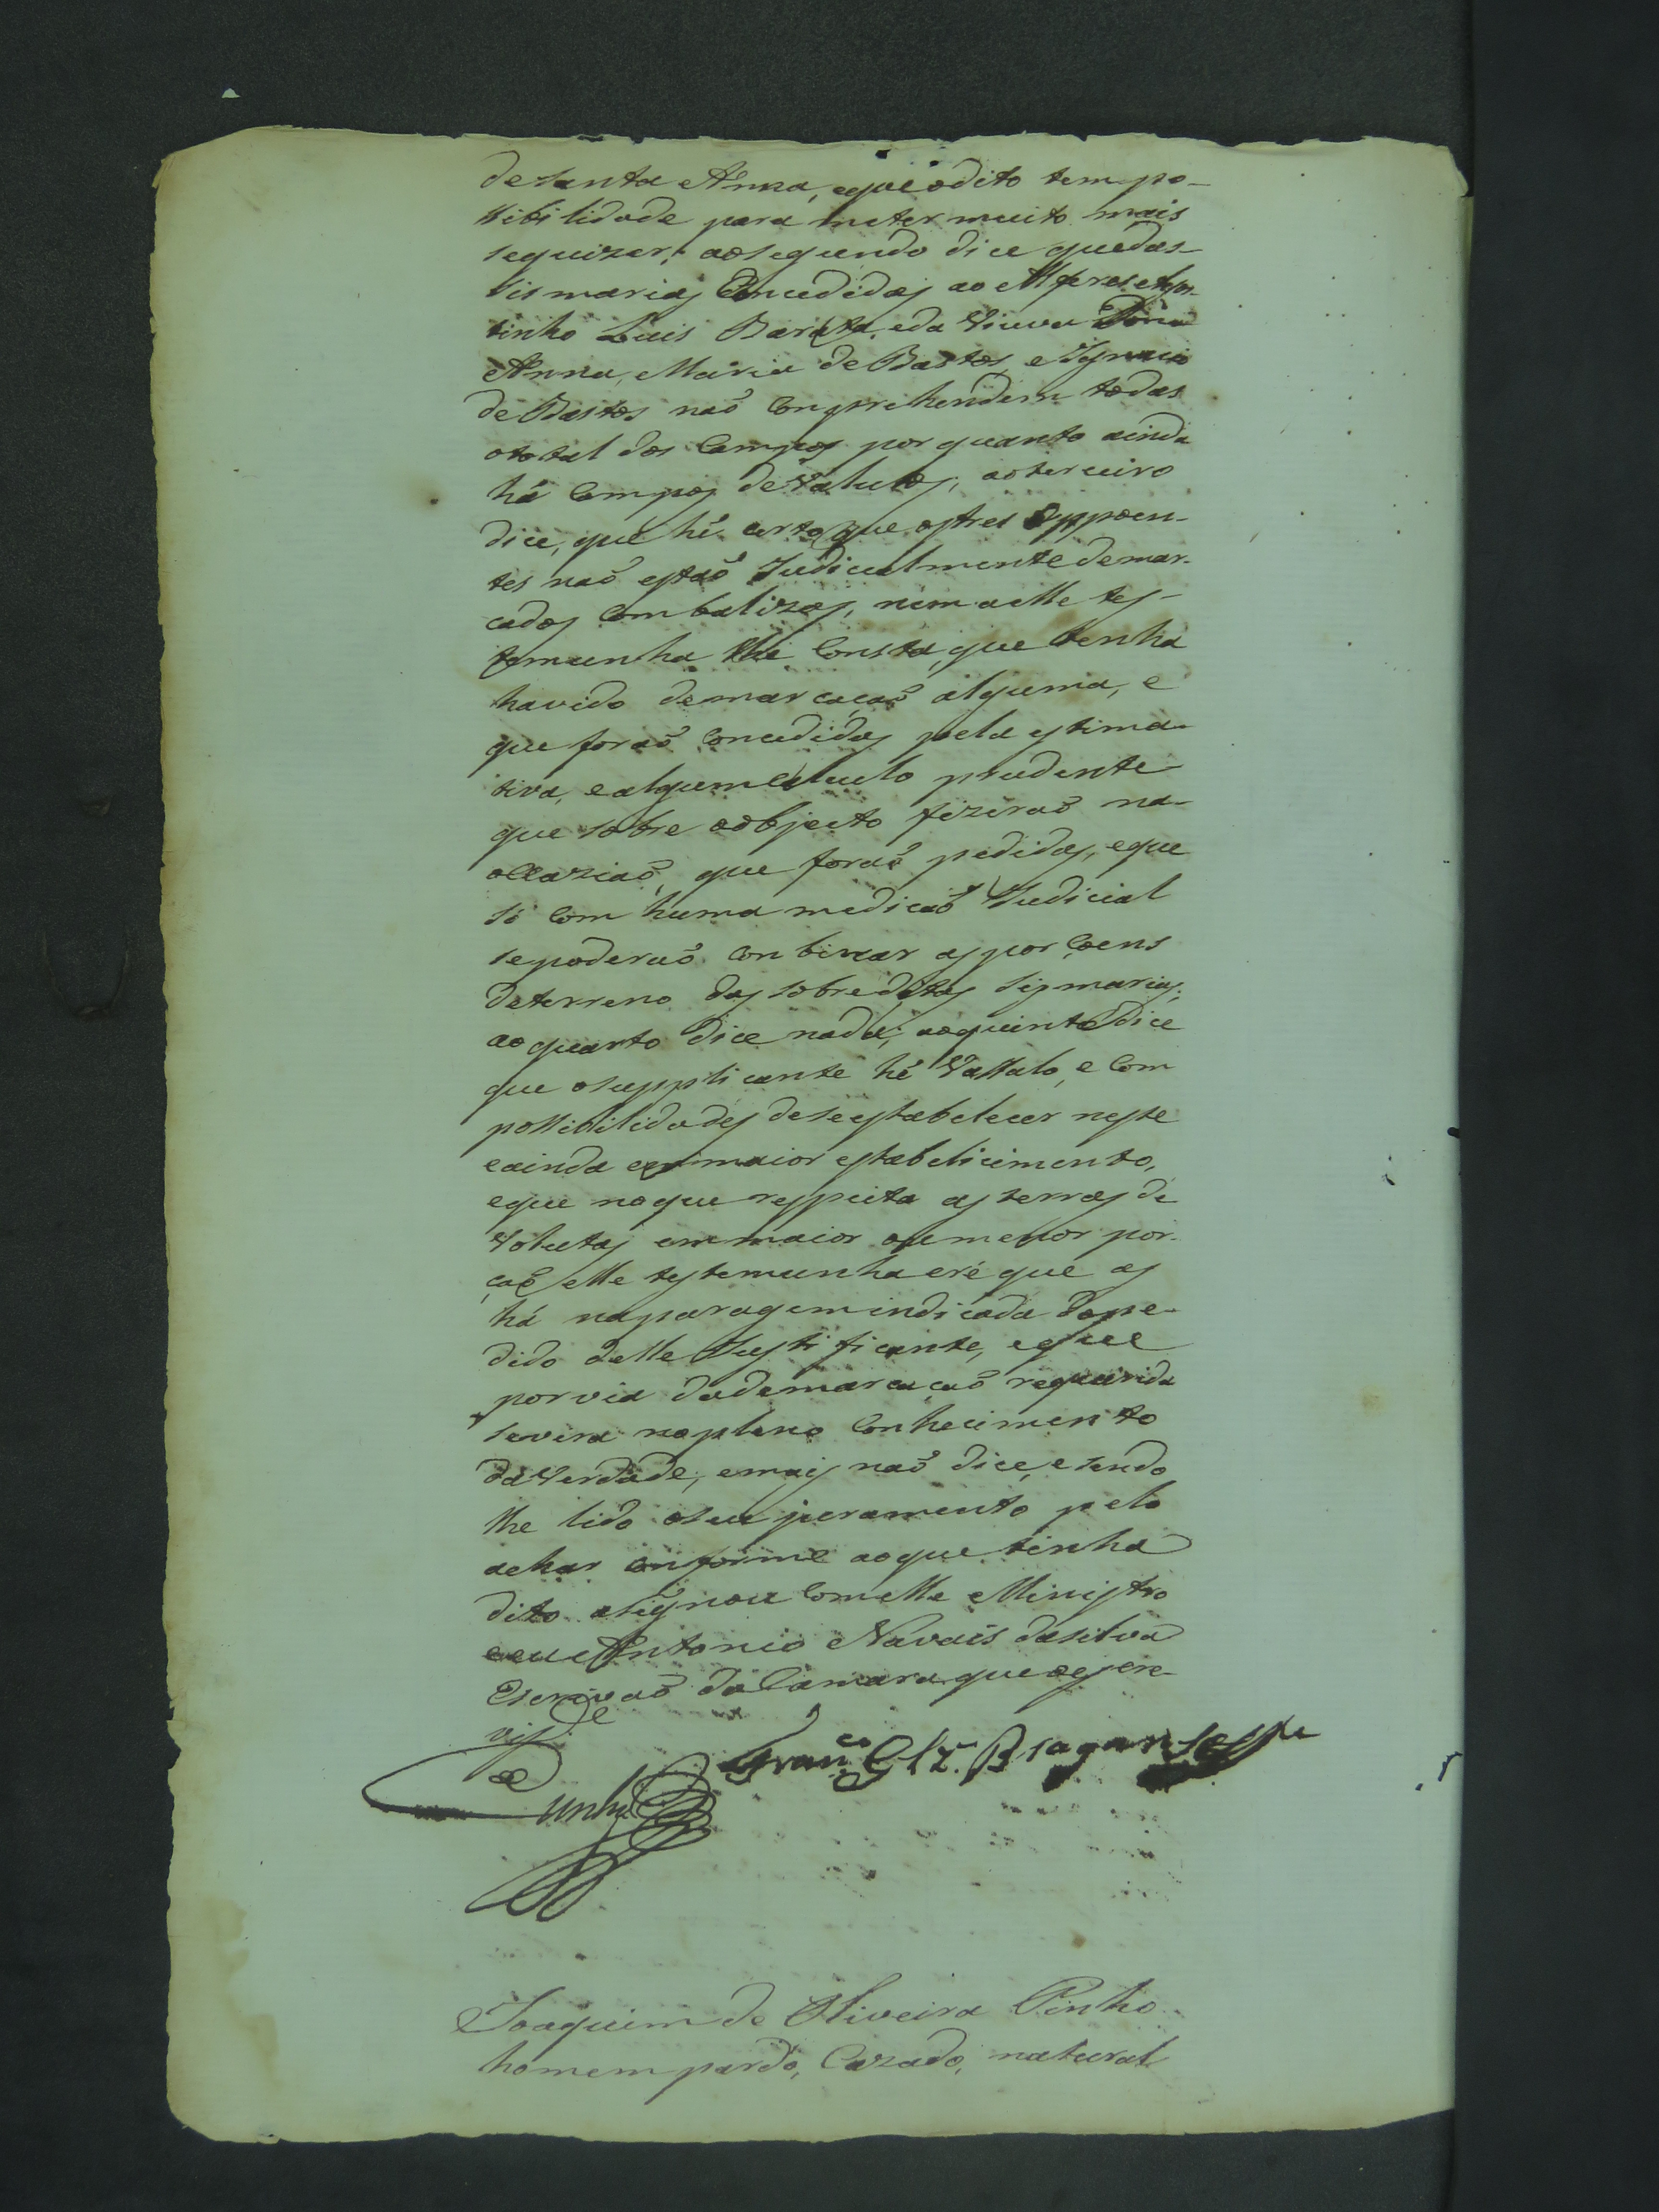 de Santa Anna, eque odito tem po-
ssibilidade para meter muito mais
sequizer; aosegundo dice quedas
Sismarias Concedidas ao Alferes Agos-
tinho Luis Barata, eda Viuva Dona
Anna Maria de Bastos, e Ignacio
de Bastos naõ Comprehendem todas
ototal dos Campos por quanto ainda
há Campos devalutos; aoterceiro
dice, que hé certo que ostres Oppoen-
tes naõ estaõ Judicialmente demar-
cados Com balizas, nem aelle tes-
temunha lhe Consta, que tenha
havido demarcaçaõ alguma, e
que foraõ Concedidas pela estima-
tiva, ealgum calculo prudente
que sobre oobjecto fizeraõ na
occaziaõ, que foraõ pedidas, eque
só Com huma mediçaõ Judicial
sepoderaõ Conbinar as porçoens
deterreno das sobreditas Sismarias;
ao quarto dice nada; aoquinto dice
que osupplicante hé Vassalo, e Com
possibilidades de seestabelecer neste
eainda em maior estabelicimento,
eque noque respeita as terras de
Volutas em maior ou menor por-
çaõ elle testemunha cré que as
há naparagem indicada dope-
dido delle Justificante, eque
por via dademarcaçaõ requerida
severá nopleno Conhecimento
daverdade; emais naõ dice, esendo
lhe lido oseu juramento pelo
achar Conforme aoque tinha
dito asignou Comelle Ministro
eeu Antonio Navais dasilva
Escrivaõ da Camara que oescre-
vi
Cunha
Fran.co Glz. Bragan
Joaquim de Oliveira Pinho
homem pardo, Cazado, natural